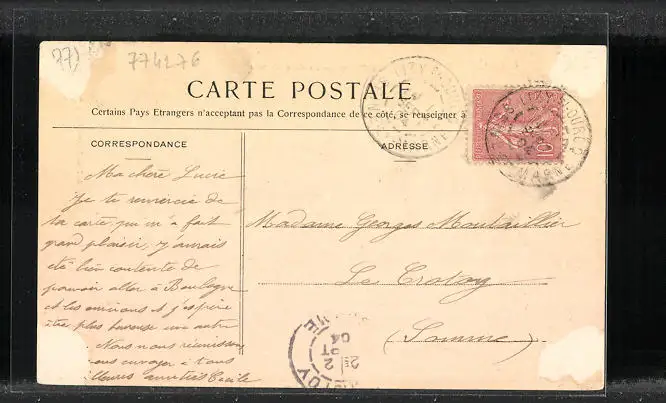 77)
774276
CARTE POSTALE
Certains Pays Etrangers n'acceptant pas la Correspondance de ce côté, se renseigner à
CORRESPONDANCE
ADRESSE
Ma chère Lucie
Je te remercie de
ta carte qui m'a fait
grand plaisir, j'aurais
été bien contente de
pouvoir aller à Boulogne
et les environs et j'espère
être plus heureuse une autre
Nous nous réunissons
envoyer à tous
amitiés Cécile
Madame Georges Moutaillier
Le Crotoy
(Somme)
LIZY-S-OURCQ
MARNE
10
2
04